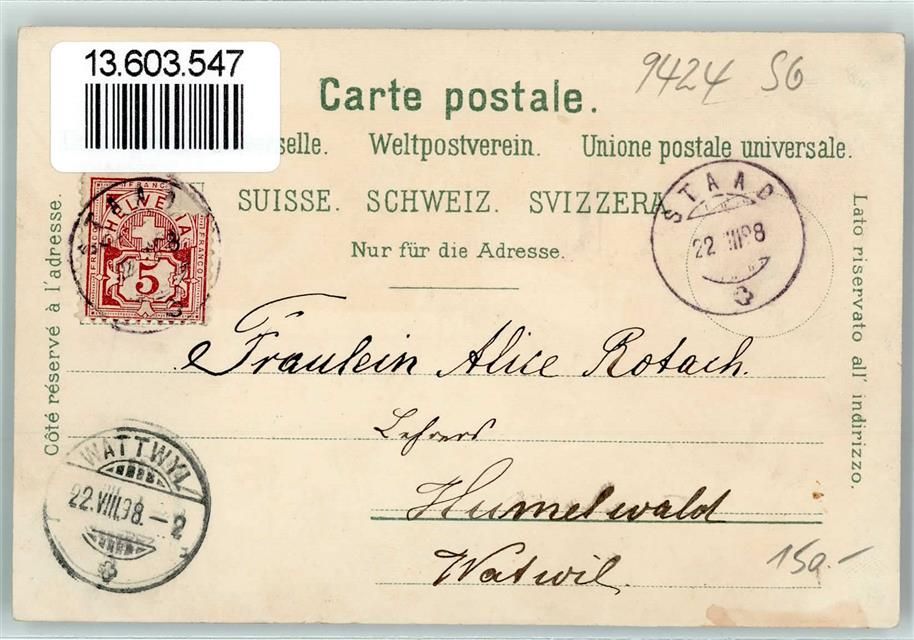 13.603.547
9424 SG
Carte postale.
selle. Weltpostverein. Unione postale universale.
SUISSE. SCHWEIZ. SVIZZERA
Nur für die Adresse.
Côté réservé à l'adresse.
Lato riservato all' indirizzo.
FRANCO
HELVETIA
FRANCO
FRANCO
5
STAAD
STAAD
22 VIII 98
Fräulein Alice Rotach.
Lehrers
Humelwald
Watwil.
WATTWYL
22.VIII.98.-2
150.-